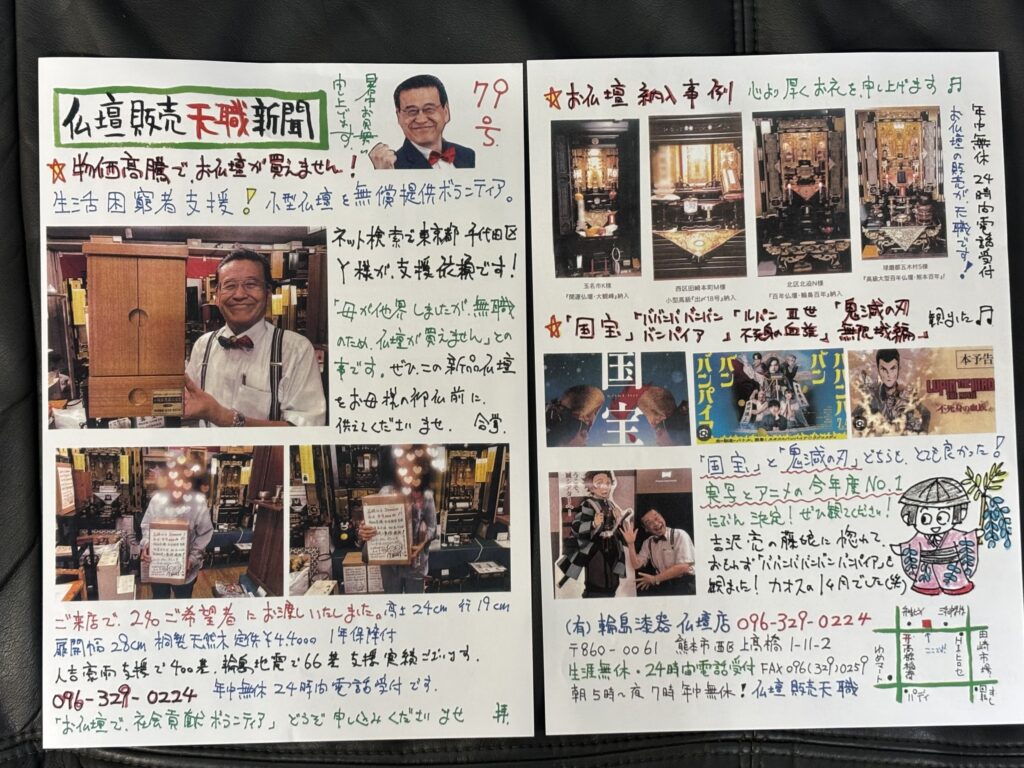 仏壇販売天職新聞
暑中お見舞い
申し上げます
79号
☆物価高騰で、お仏壇が買えません!
生活困窮者支援!小型仏壇を無償提供ボランティア。
ネット検索で東京都千代田区
Y様が、支援依頼です!
「母が他界しましたが、無職
のため、仏壇が買えません」との
事です。ぜひ、この新品仏壇
をお母様の御仏前に、
供えてくださいませ。 合掌
ご来店で、2名ご希望者にお渡しいたしました。高さ24cm 行19cm
扉開幅28cm 桐製天然木 定価¥44,000 1年保障付
人吉豪雨支援で400基、輪島地震で66基支援実績ございます。
096-329-0224 年中無休24時間電話受付です。
「お仏壇で、社会貢献ボランティア」どうぞ申し込みくださいませ 拝
☆お仏壇納入事例 心より厚くお礼を申し上げます♬
年中無休 24時間電話受付
お仏壇の販売が天職です!
玉名市K様
『開運仏壇・大観峰』納入
西区田崎本町M様
小型高級『出〆18号』納入
北区北迫N様
『百年仏壇・輪島百年』納入
球磨郡五木村S様
『高級大型百年仏壇・熊本百年』
☆「国宝」「ババンババンバン バンパイア」「ルパンⅢ世 不死身の血族」「鬼滅の刃 無限城編」観ました♬
国宝
ババンババンバンバンパイア
本予告
LUPIN THE IIIRD
不死身の血族
「国宝」と「鬼滅の刃」どちらも、とても良かった!
実写とアニメの今年度No.1
たぶん決定!ぜひ観てください!
吉沢亮の藤娘に惚れて、
おもわず「ババンババンバンバンパイア」も
観ました!カオスの1ヶ月でした(笑)
(有)輪島漆器仏壇店 096-329-0224
〒860-0061 熊本市西区上高橋1-11-2
生涯無休・24時間電話受付 FAX 096(329)0259
朝5時~夜7時 年中無休!仏壇販売天職
ここだよ
田崎市場
ゆめマート